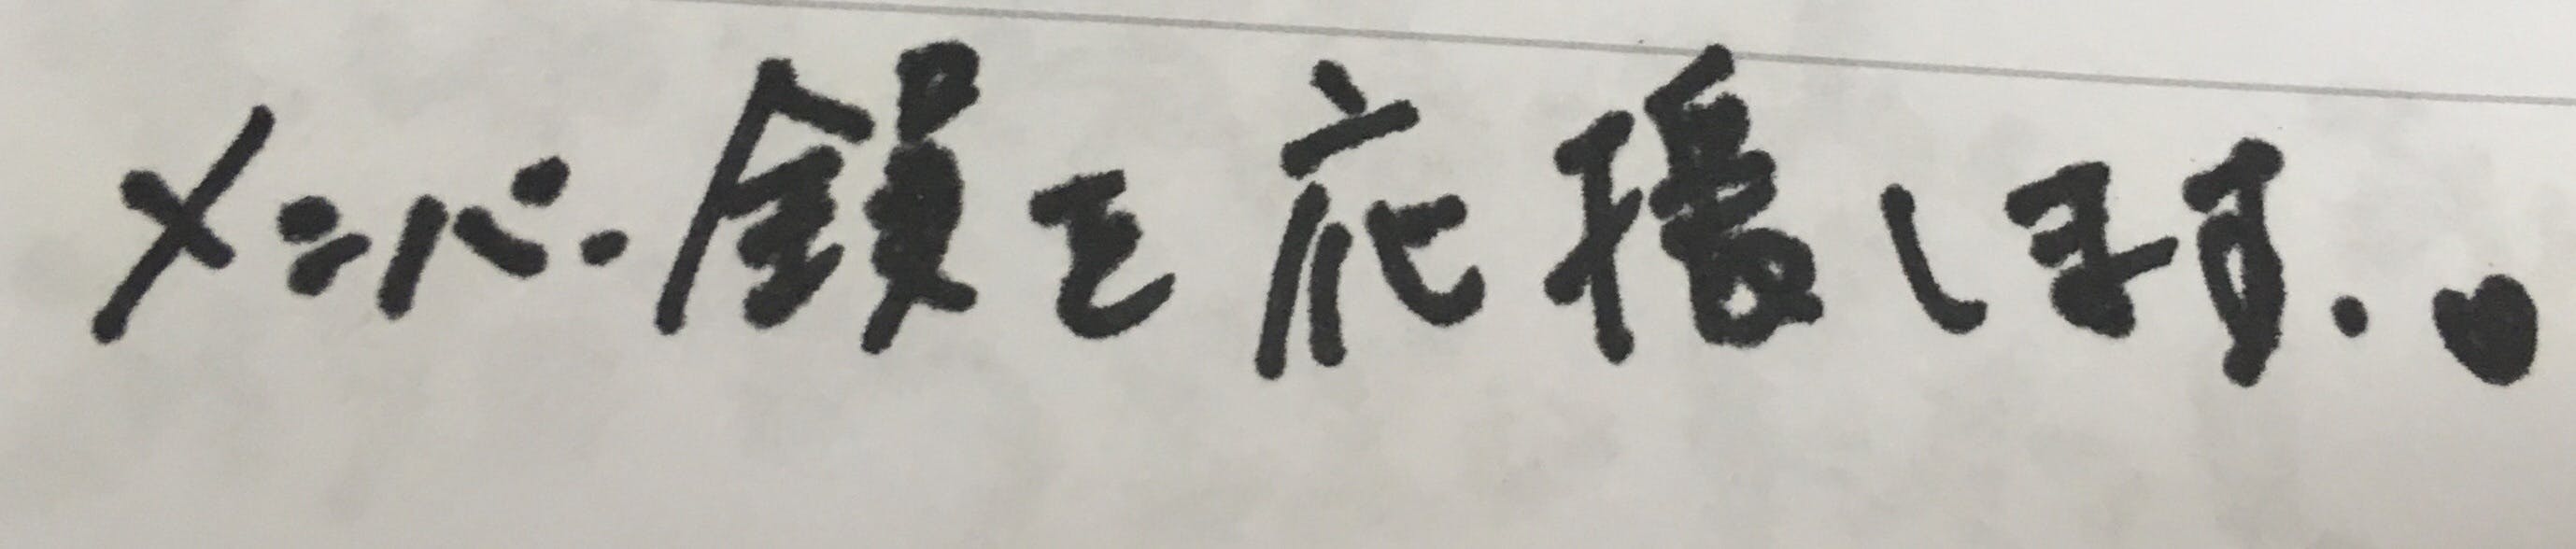 メンバー全員を応援します。